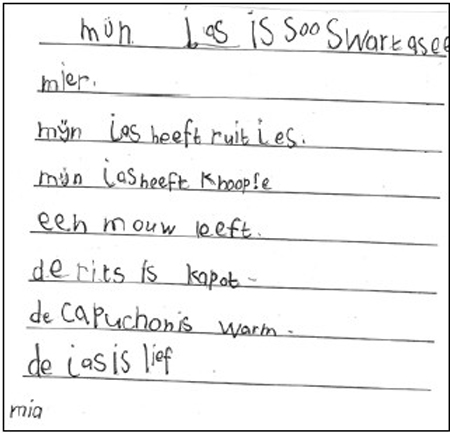 mijn jas is soo swart as ee
mier.
mijn jas heeft ruitjes.
mijn jas heeft knoopje
een mouw leeft.
de rits is kapot.
de capuchon is warm.
de jas is lief
mia